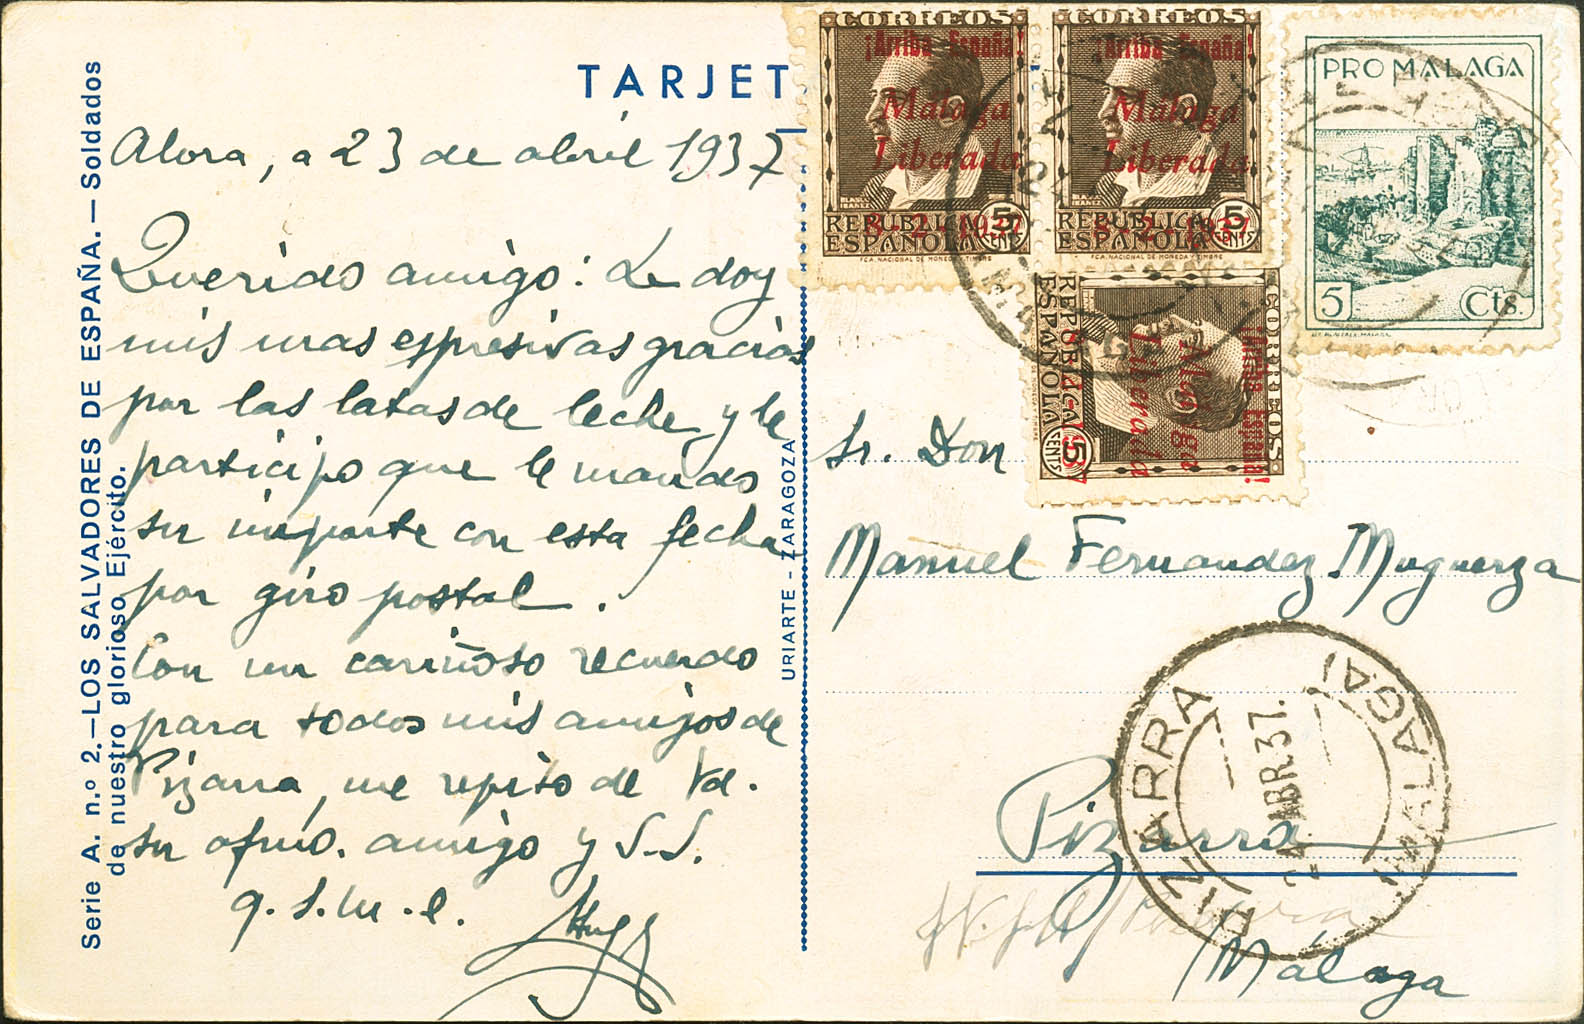 Serie A. n.º 2.—LOS SALVADORES DE ESPAÑA.—Soldados
de nuestro glorioso Ejército.
TARJET
Alora, a 23 de abril 1937
Querido amigo: Le doy
mis mas espresivas gracias
por las latas de leche, y le
participo que le mando
su importe con esta fecha
por giro postal.
Con un cariñoso recuerdo
para todos mis amigos de
Pizarra, me repito de Vd.
su afmo. amigo y S.S.
q.s.m.e.
URIARTE - ZARAGOZA
CORREOS
¡Arriba España!
Málaga
Liberada
8-2-1937
REPUBLICA
ESPAÑOLA
5 CENTS
FCA. NACIONAL DE MONEDA Y TIMBRE
CORREOS
¡Arriba España!
Málaga
Liberada
8-2-1937
REPUBLICA
ESPAÑOLA
5 CENTS
FCA. NACIONAL DE MONEDA Y TIMBRE
CORREOS
¡Arriba España!
Málaga
Liberada
REPUBLICA
ESPAÑOLA
5 CENTS
PRO MALAGA
5 Cts.
Sr. Don
Manuel Fernandez Muguerza
PIZARRA
(MALAGA)
24 ABR 37.
Pizarra
Málaga